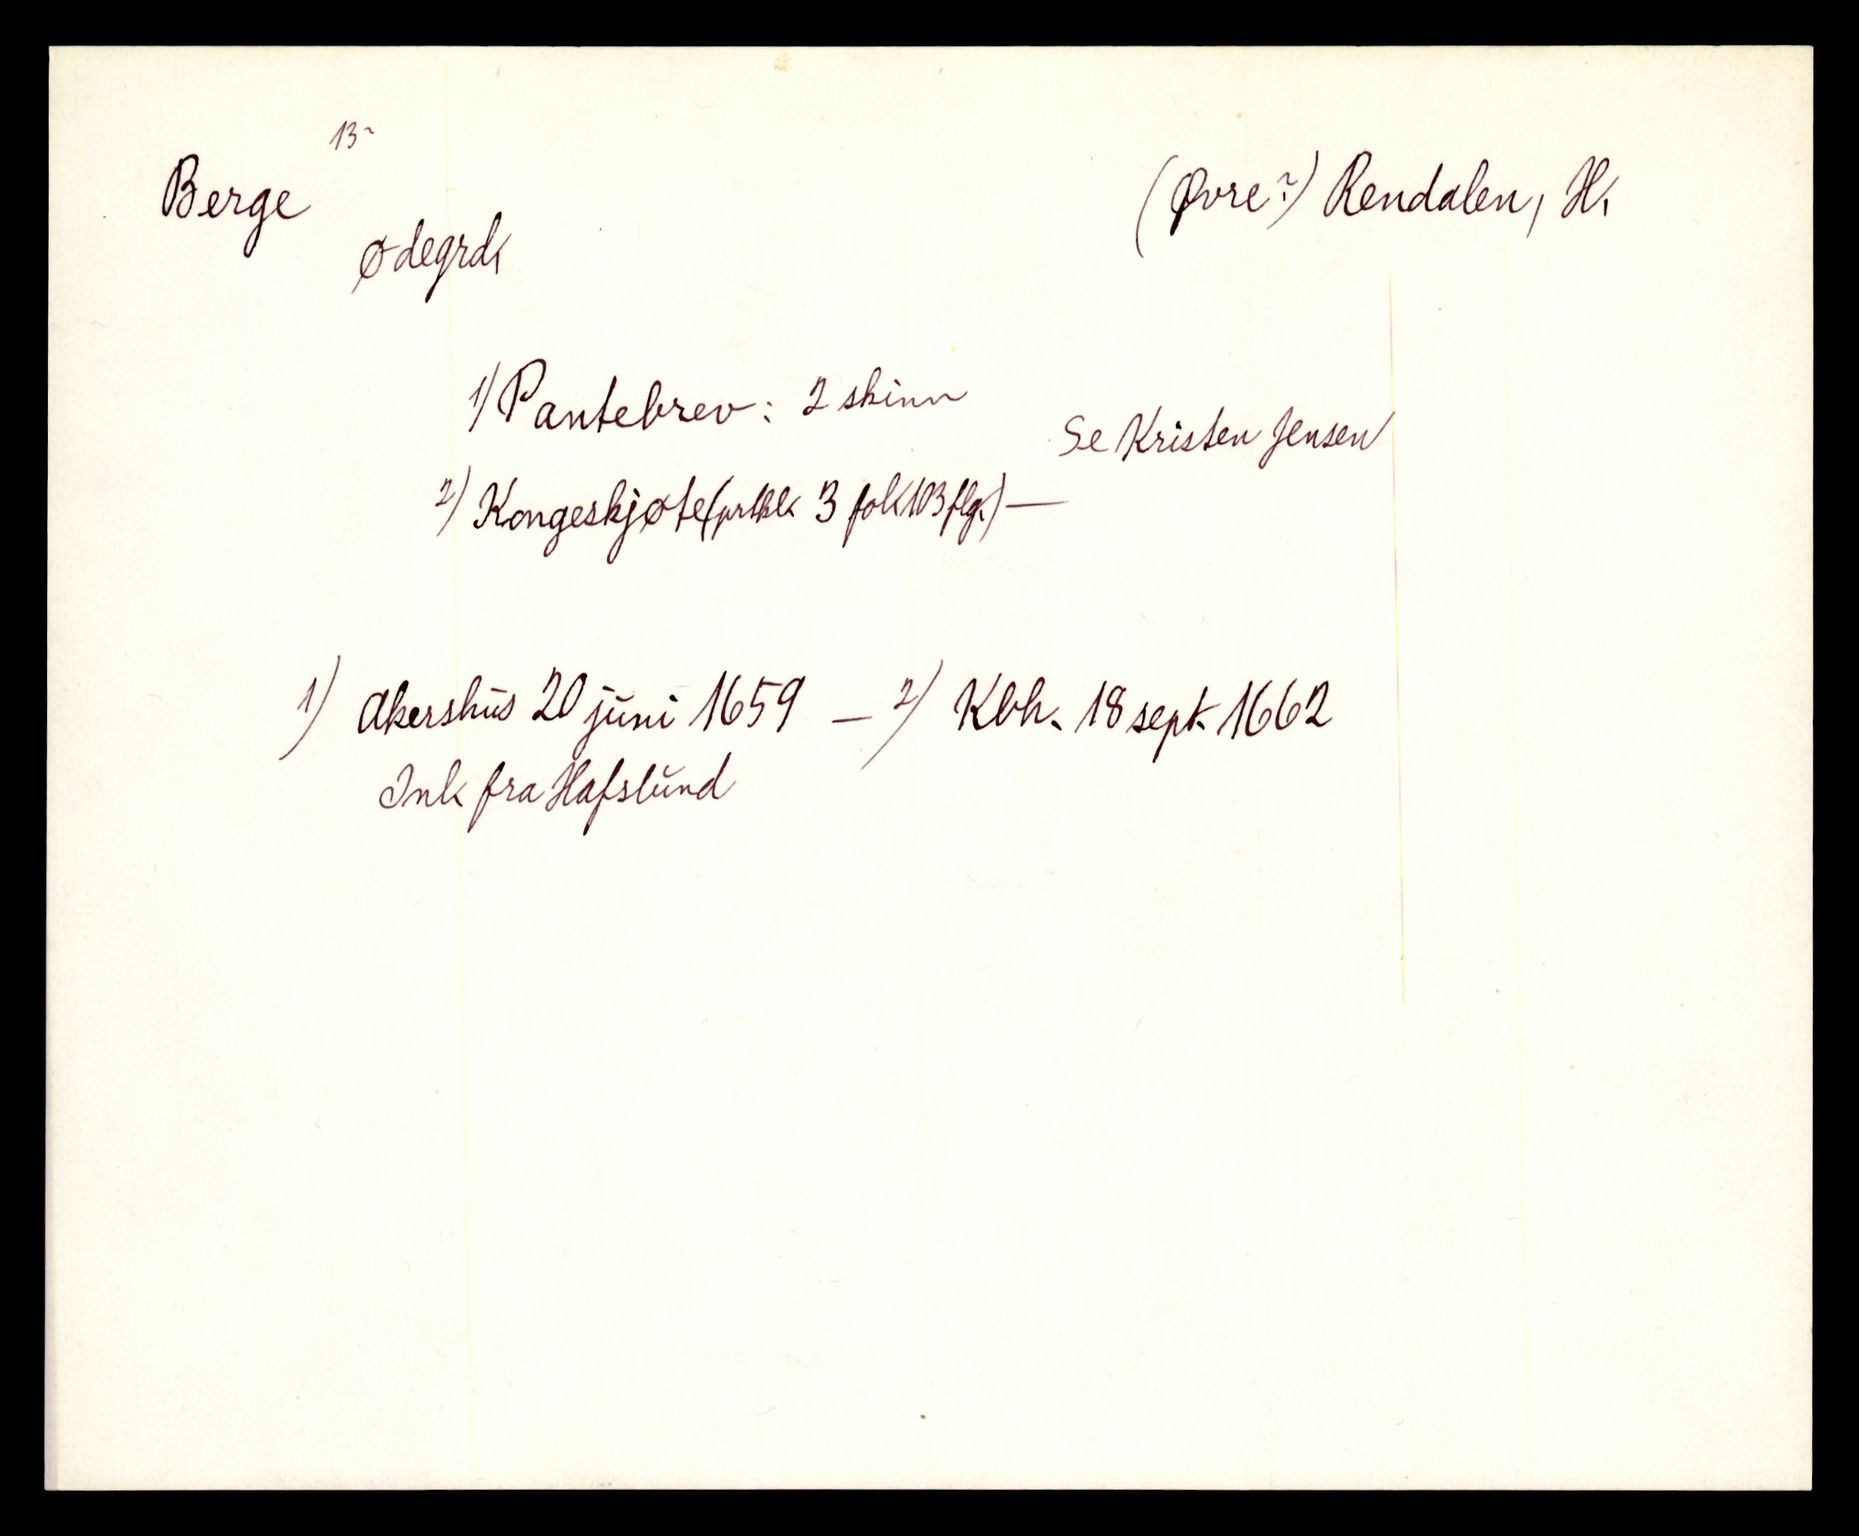 13
Berge
(Øvre?) Rendalen, H.
Ødegrd.
1) Pantebrev: 2 skinn
Se Kristen Jensen
2) Kongeskjøte (prtkl. 3 fol. 103 flg.) —
1) Akershus 20 juni 1659 — 2) Kbh. 18 sept. 1662
Ink fra Hafslund